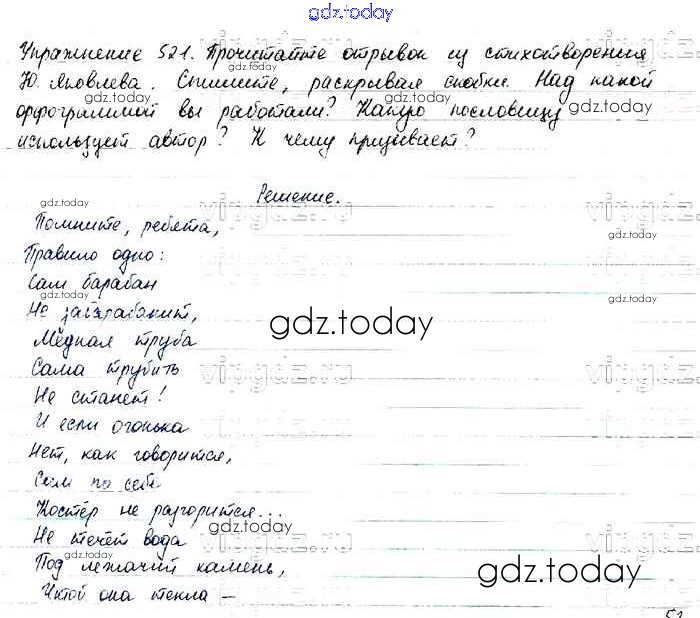 gdz.today
Упражнение 521. Прочитайте отрывок из стихотворения
Ю. Яковлева. Спишите, раскрывая скобки. Над какой
gdz.today gdz.today gdz.today
орфограммой вы работали? Какую пословицу
использует автор? К чему призывает?
gdz.today vipgdz.ru vipgdz
Решение.
Помните, ребята,
gdz.today
Правило одно:
vipgdz.ru vipgdz
Сам барабан
gdz.today gdz.today
Не забарабанит,
gdz.today
Медная труба
Сама трубить
vipgdz.ru vipgdz
Не станет!
И если огонька
Нет, как говорится,
Сам по себе
Костёр не разгорится...
gdz.today gdz.today
Не течёт вода
vipgdz.ru vipgdz
gdz.today
Под лежачий камень,
gdz.today
Чтоб она текла –